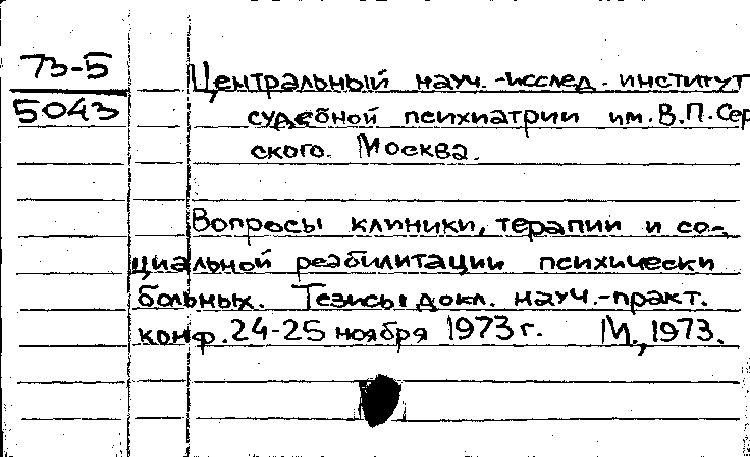 73-5
5043
Центральный науч.-исслед. институт
судебной психиатрии им. В.П. Сер
ского. Москва.
Вопросы клиники, терапии и со-
циальной реабилитации психически
больных. Тезисы докл. науч.-практ.
конф. 24-25 ноября 1973 г. М., 1973.